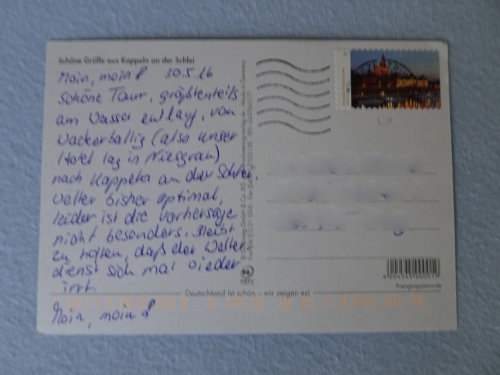 Schöne Grüße aus Kappeln an der Schlei
Moin, moin! 30.5.16
Schöne Tour, größtenteils
am Wasser entlang, von
Wackerballig (also unser
Hotel lag in Niesgrau)
nach Kappeln an der Schlei.
Wetter bisher optimal,
leider ist die Vorhersage
nicht besonders. Bleibt
zu hoffen, daß der Wetter
dienst sich mal wieder
irrt.
Moin, moin!
Deutschland ist schön – wir zeigen es!